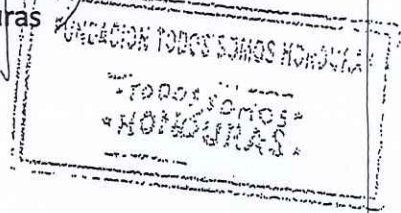 uras
FUNDACION TODOS SOMOS HONDURAS
-TODOS SOMOS-
-HONDURAS.